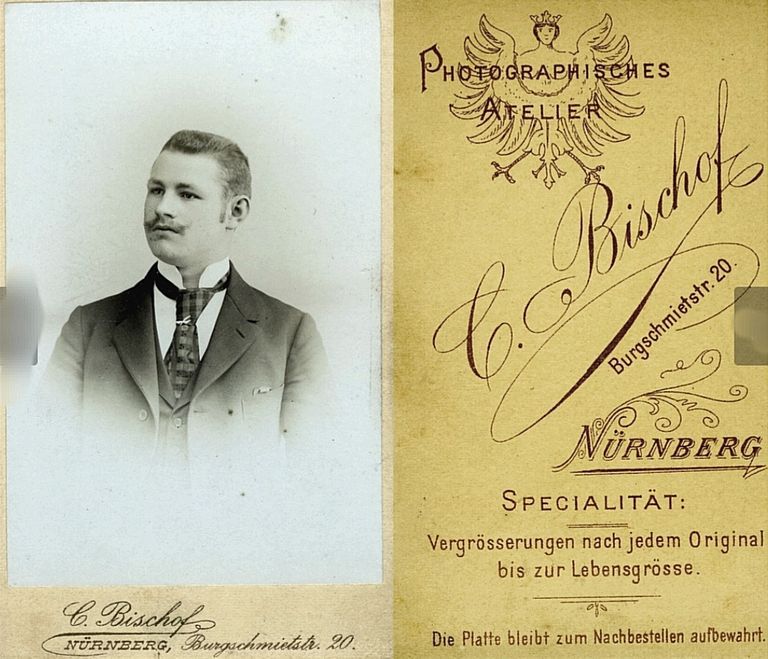 C. Bischof
NÜRNBERG, Burgschmietstr. 20.
PHOTOGRAPHISCHES
ATELIER
C. Bischof
Burgschmietstr. 20.
NÜRNBERG
SPECIALITÄT:
Vergrösserungen nach jedem Original
bis zur Lebensgrösse.
Die Platte bleibt zum Nachbestellen aufbewahrt.